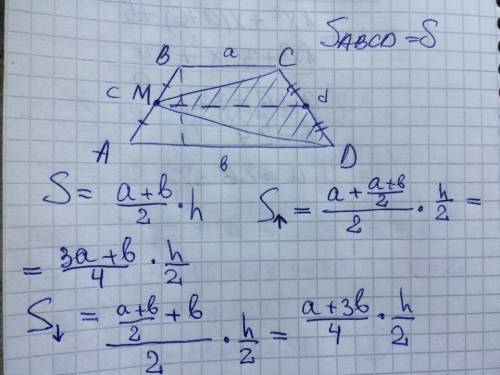 S_ABCD = S
B a C
c M d
A в D
S = (a+в)/2 · h
S↑ = (a + (a+в)/2)/2 · h/2 =
= (3a+в)/4 · h/2
S↓ = ((a+в)/2 + в)/2 · h/2 = (a+3в)/4 · h/2